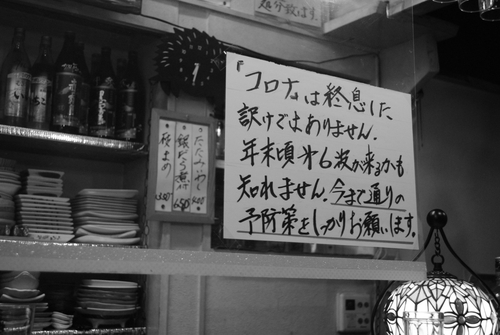 処分致します。
『コロナ』は終息した
訳けでよありません.
年末頃㐧6波が来るかも
知れません.今まで通りの
予防策をしっかりお願いします.
たたみいわし
枝まめ